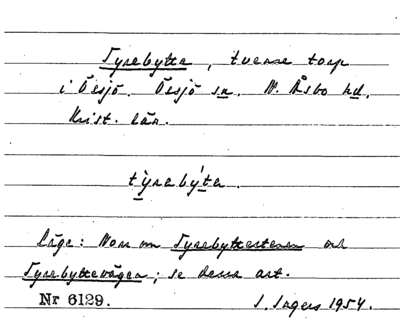 Tyrebytta, tvenne torp
i Össjö. Össjö sn. N. Åsbo hd.
Krist. län.
tỳrabýta.
Läge: Norr om Tyrebyttestenen och
Tyrebyttevägen; se dessa art.
Nr 6129. I. Ingers 1954.